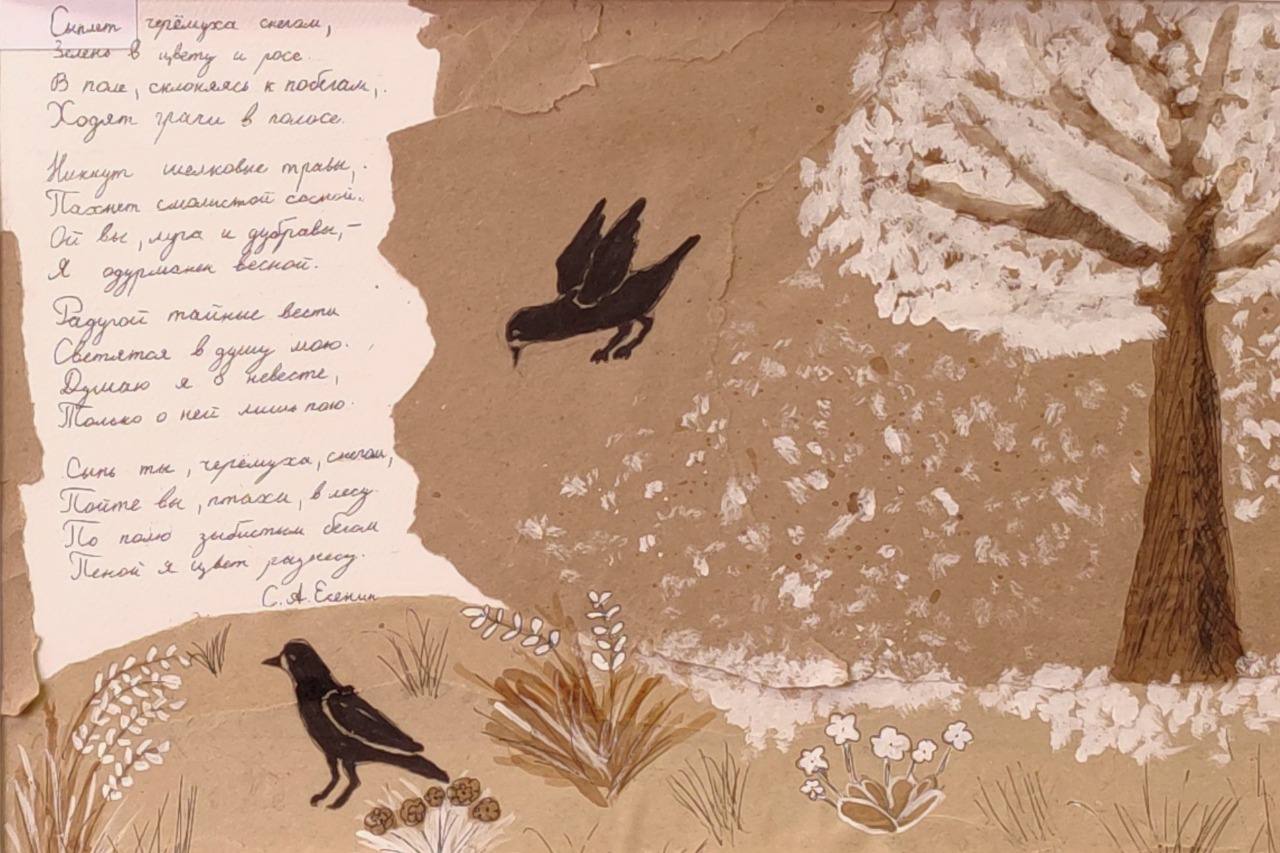 Сыплет черёмуха снегом,
Зелень в цвету и росе.
В поле, склоняясь к побегам,
Ходят грачи в полосе.
Никнут шелковые травы,
Пахнет смолистой сосной.
Ой вы, луга и дубравы, -
Я одурманен весной.
Радугой тайные вести
Светятся в душу мою.
Думаю я о невесте,
Только о ней лишь пою.
Сыпь ты, черёмуха, снегом,
Пойте вы, птахи, в лесу.
По полю зыбистым бегом
Пеной я цвет разнесу.
С.А.Есенин